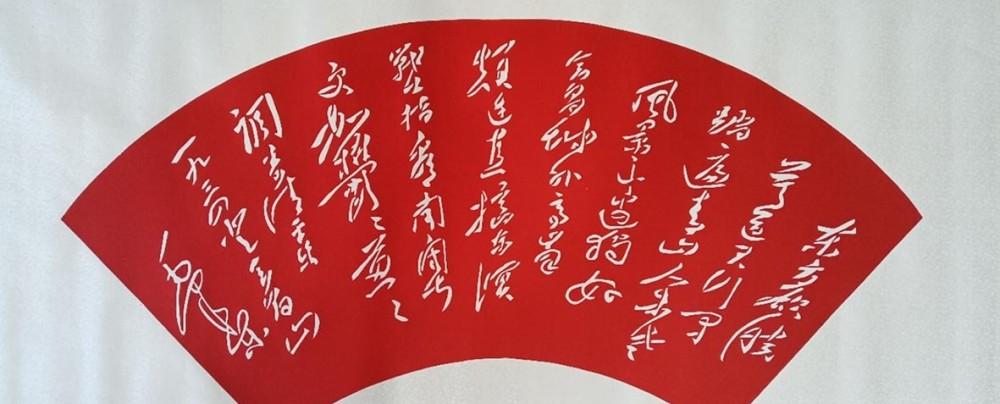 东方欲晓
莫道君行早
踏遍青山人未老
风景这边独好
会昌城外高峰
颠连直接东溟
战士指看南粤
更加郁々葱々
调寄清平乐
一九三四